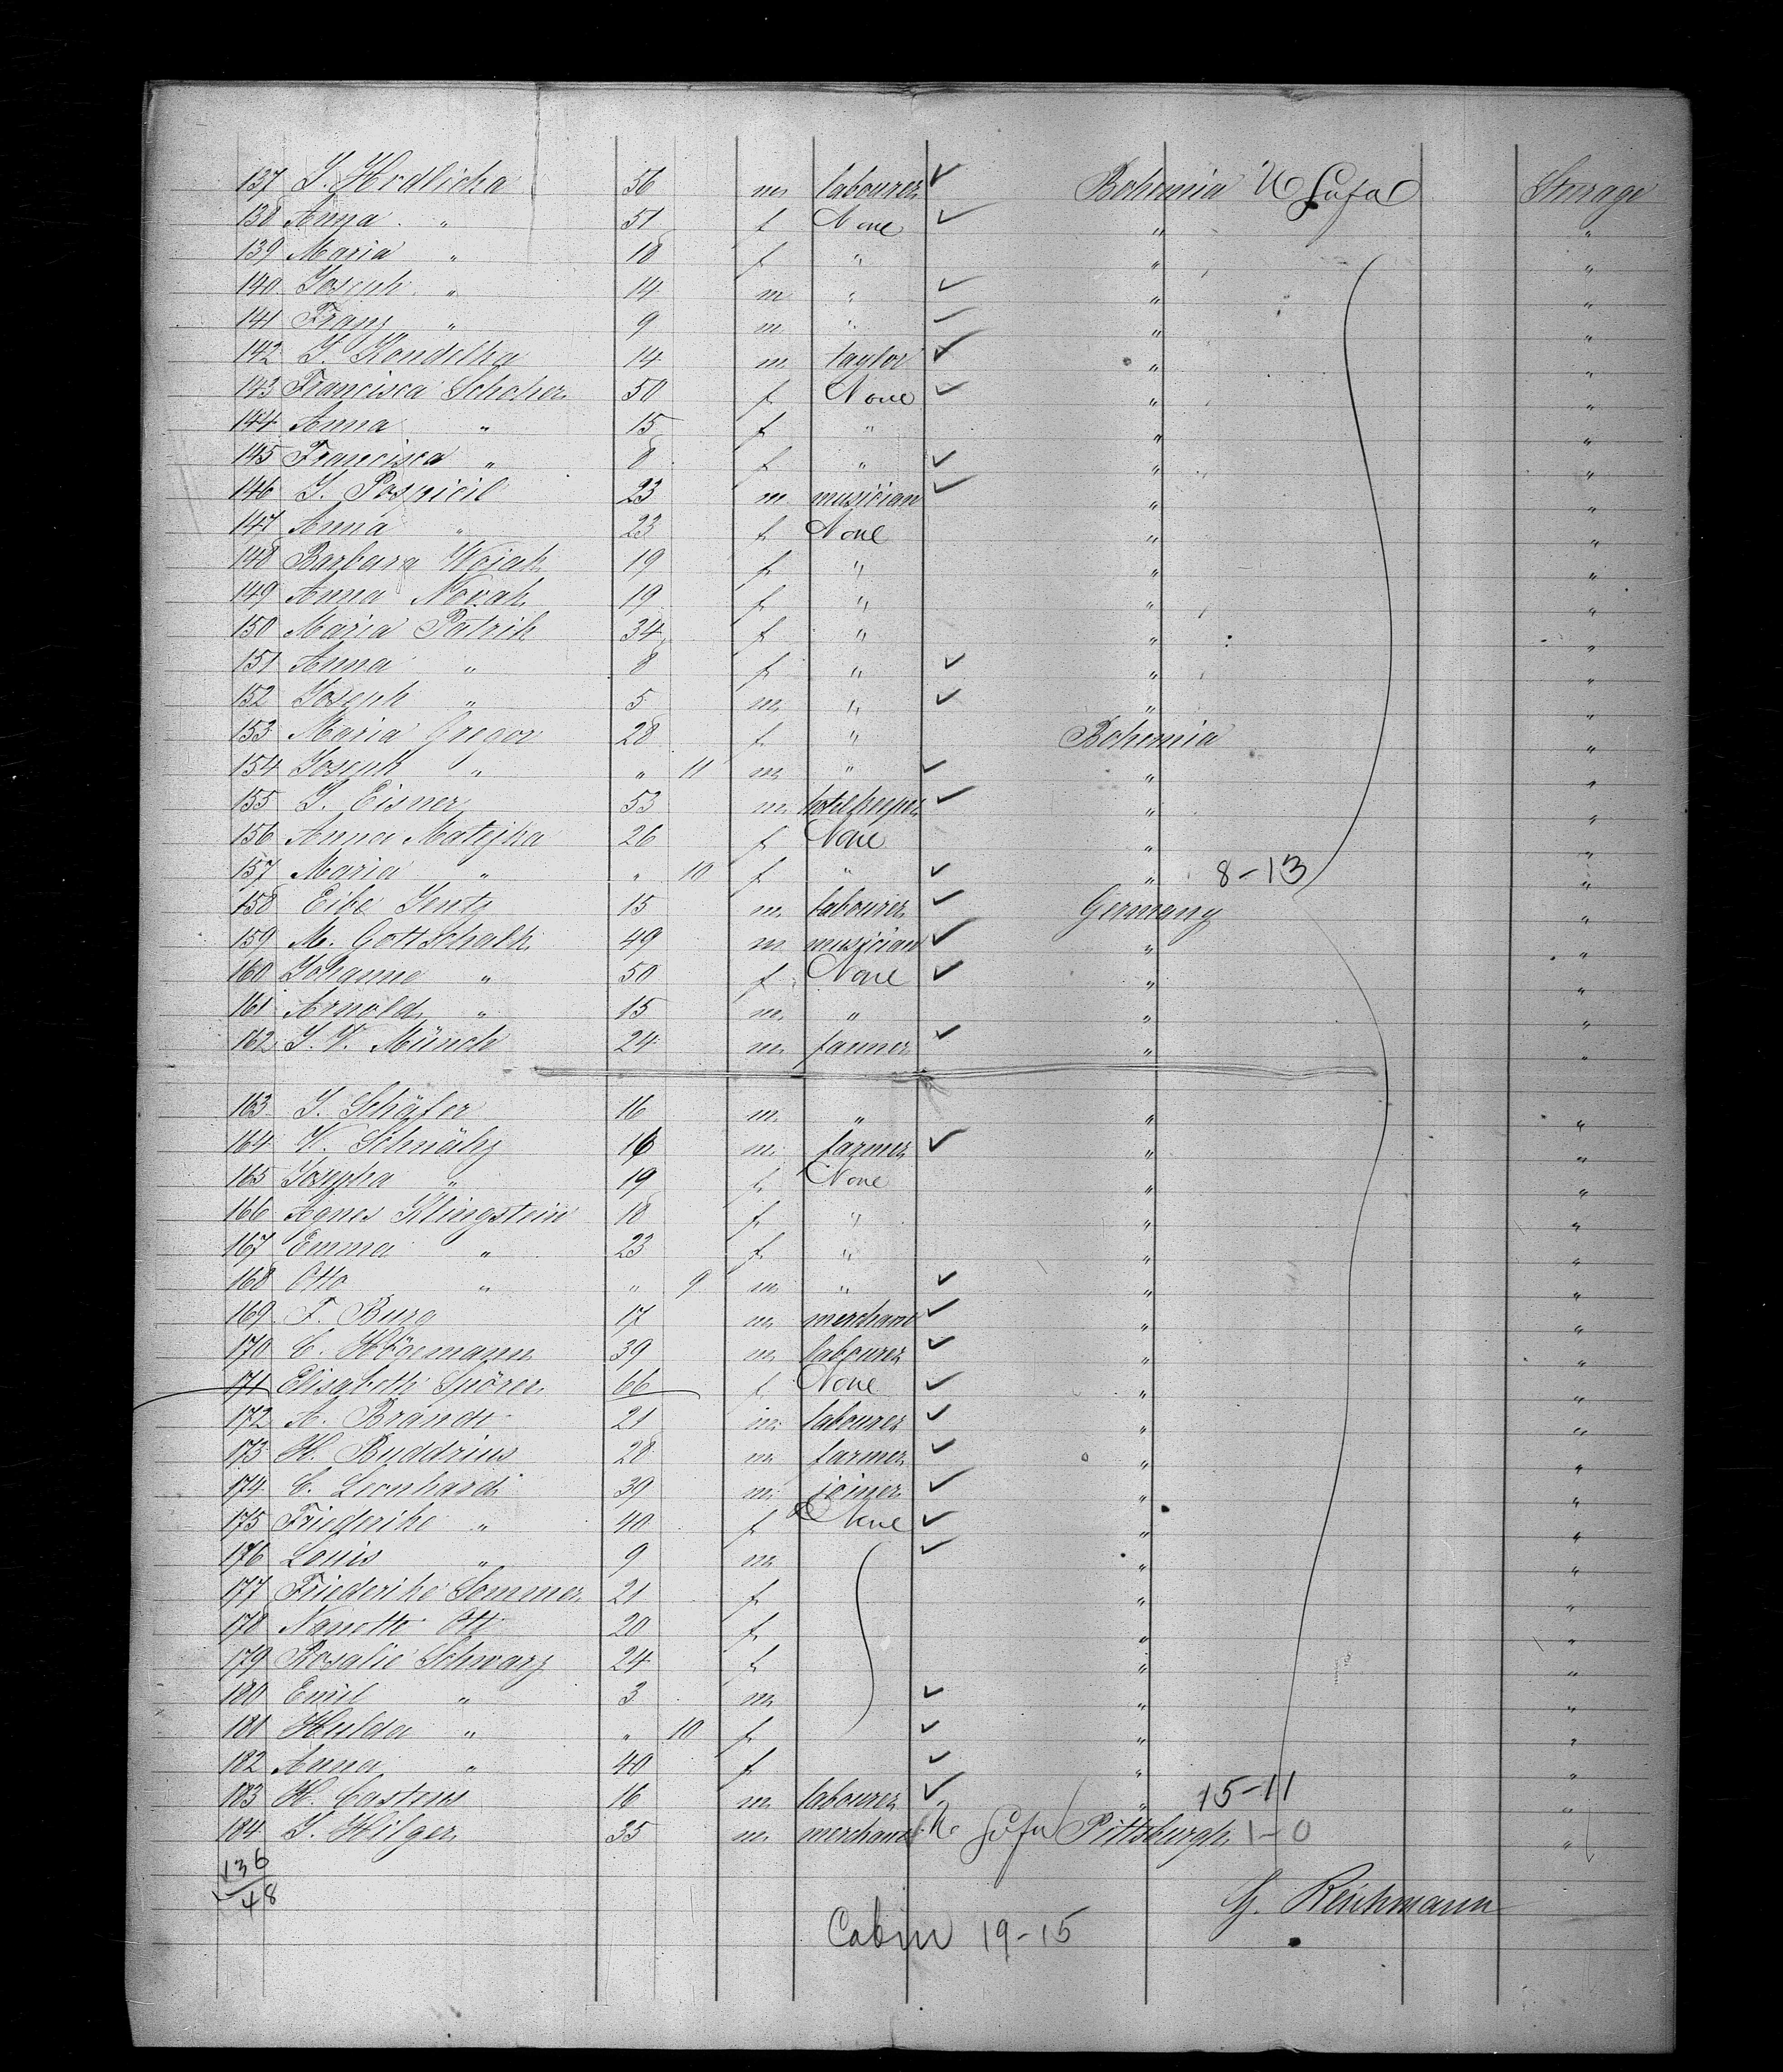 137 J. Hodlicka 56 m labourer ✓ Bohemia U States Steerage
138 Anna " 51 f None ✓ " "
139 Maria " 18 f " " "
140 Joseph " 14 m " ✓ " "
141 Franz " 9 m " ✓ " "
142 J. Kondelka 14 m taylor ✓ " "
143 Francisca Scholier 50 f None ✓ " "
144 Anna " 15 f " " "
145 Francisca " 8 f " ✓ " "
146 J. Pospicil 23 m musician ✓ " "
147 Anna " 23 f None " "
148 Barbara Wojak 19 f " " "
149 Anna Novak 19 f " " "
150 Maria Patrik 34 f " " "
151 Anna " 8 f " ✓ " "
152 Joseph " 5 m " ✓ " "
153 Maria Gregor 28 f " Bohemia "
154 Joseph " " 11 m " ✓ " "
155 J. Eisner 53 m hotelkeeper ✓ " "
156 Anna Matejka 26 f None " "
157 Maria " " 10 f " ✓ " 8-13 "
158 Eibe Jentz 15 m labourer ✓ Germany "
159 M. Gottschalk 49 m musician ✓ " "
160 Johanne " 50 f None ✓ " "
161 Arnold " 15 m " " "
162 J. V. Münch 24 m farmer ✓ " "
163 J. Schäfer 16 m " " "
164 V. Schnähz 16 m farmer ✓ " "
165 Josepha " 19 f None " "
166 Agnes Klingstein 18 f " " "
167 Emma " 23 f " " "
168 Otto " " 9 m " ✓ " "
169 F. Burg 17 m merchant ✓ " "
170 C. Högemann 39 m labourer ✓ " "
171 Elisabeth Spörer 66 f None ✓ " "
172 A. Brandt 21 m labourer ✓ " "
173 H. Buddrius 28 m farmer ✓ " "
174 C. Leonhardi 39 m joiner ✓ " "
175 Friederike " 40 f None ✓ " "
176 Louis " 9 m ✓ " "
177 Friederike Sommer 21 f " "
178 Nanette Ott 20 f " "
179 Rosalie Schwarz 24 f " "
180 Emil " 3 m ✓ " "
181 Hulda " " 10 f ✓ " "
182 Anna " 40 f ✓ " "
183 H. Castens 16 m labourer ✓ " 15-11 "
184 J. Hilger 35 m merchant Pittsburgh 1-0 "
136
48
G. Reichmann
Cabin 19-15